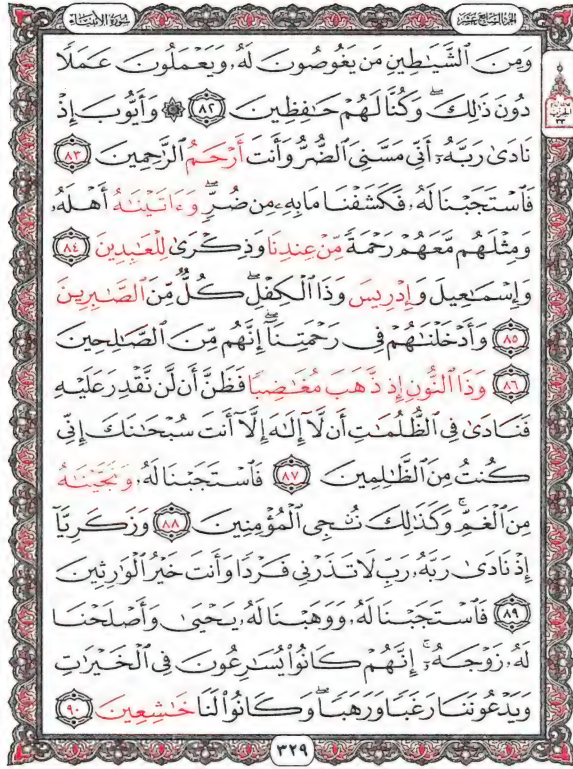 سُورَةُ الأَنبِيَاءِ
الجُزءُ السَّابِعَ عَشَرَ
وَمِنَ ٱلشَّيَٰطِينِ مَن يَغُوصُونَ لَهُۥ وَيَعْمَلُونَ عَمَلًا
دُونَ ذَٰلِكَ ۖ وَكُنَّا لَهُمْ حَٰفِظِينَ ٨٢ ۞ وَأَيُّوبَ إِذْ
نَادَىٰ رَبَّهُۥٓ أَنِّى مَسَّنِىَ ٱلضُّرُّ وَأَنتَ أَرْحَمُ ٱلرَّٰحِمِينَ ٨٣
فَٱسْتَجَبْنَا لَهُۥ فَكَشَفْنَا مَا بِهِۦ مِن ضُرٍّ ۖ وَءَاتَيْنَٰهُ أَهْلَهُۥ
وَمِثْلَهُم مَّعَهُمْ رَحْمَةً مِّنْ عِندِنَا وَذِكْرَىٰ لِلْعَٰبِدِينَ ٨٤
وَإِسْمَٰعِيلَ وَإِدْرِيسَ وَذَا ٱلْكِفْلِ ۖ كُلٌّ مِّنَ ٱلصَّٰبِرِينَ
٨٥ وَأَدْخَلْنَٰهُمْ فِى رَحْمَتِنَآ ۖ إِنَّهُم مِّنَ ٱلصَّٰلِحِينَ
٨٦ وَذَا ٱلنُّونِ إِذ ذَّهَبَ مُغَٰضِبًا فَظَنَّ أَن لَّن نَّقْدِرَ عَلَيْهِ
فَنَادَىٰ فِى ٱلظُّلُمَٰتِ أَن لَّآ إِلَٰهَ إِلَّآ أَنتَ سُبْحَٰنَكَ إِنِّى
كُنتُ مِنَ ٱلظَّٰلِمِينَ ٨٧ فَٱسْتَجَبْنَا لَهُۥ وَنَجَّيْنَٰهُ
مِنَ ٱلْغَمِّ ۚ وَكَذَٰلِكَ نُۨجِى ٱلْمُؤْمِنِينَ ٨٨ وَزَكَرِيَّآ
إِذْ نَادَىٰ رَبَّهُۥ رَبِّ لَا تَذَرْنِى فَرْدًا وَأَنتَ خَيْرُ ٱلْوَٰرِثِينَ
٨٩ فَٱسْتَجَبْنَا لَهُۥ وَوَهَبْنَا لَهُۥ يَحْيَىٰ وَأَصْلَحْنَا
لَهُۥ زَوْجَهُۥٓ ۚ إِنَّهُمْ كَانُوا۟ يُسَٰرِعُونَ فِى ٱلْخَيْرَٰتِ
وَيَدْعُونَنَا رَغَبًا وَرَهَبًا ۖ وَكَانُوا۟ لَنَا خَٰشِعِينَ ٩٠
٣٢٩